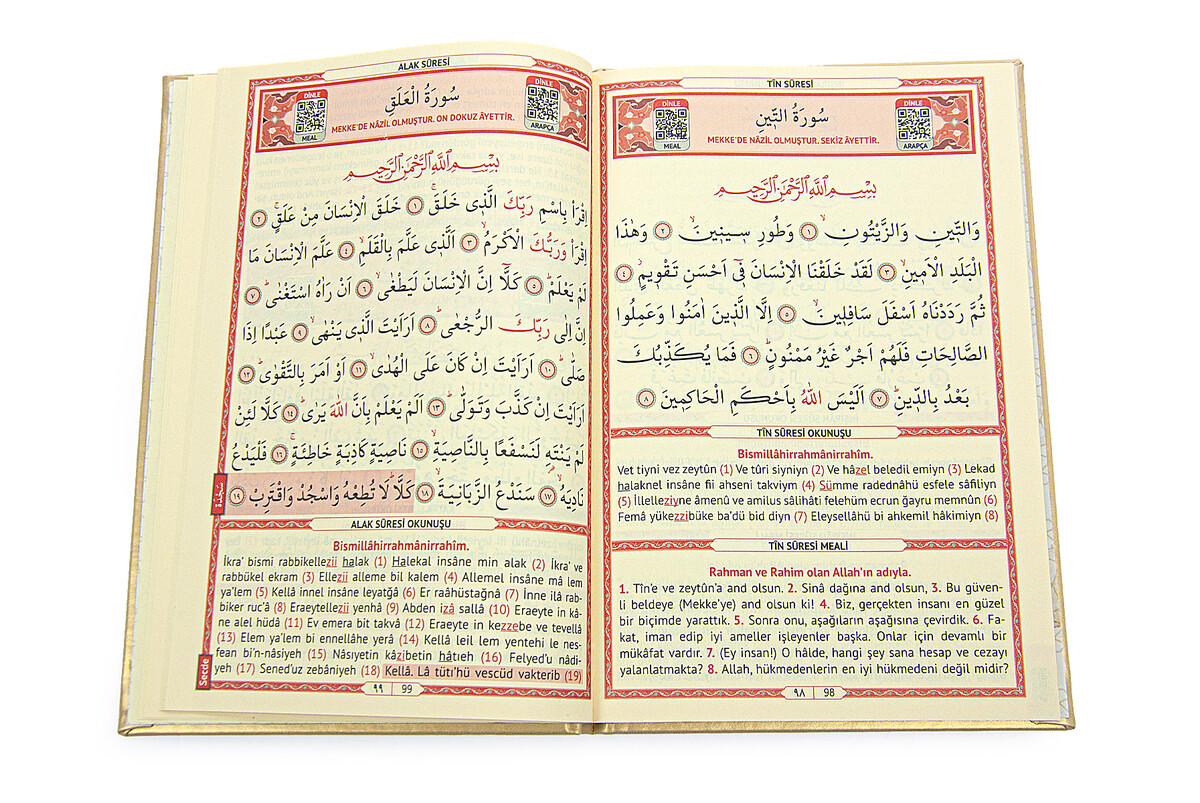 TÎN SÛRESİ
DİNLE
MEAL
سُورَةُ التّ۪ينِ
MEKKE'DE NÂZİL OLMUŞTUR. SEKİZ ÂYETTİR.
DİNLE
ARAPÇA
بِسْمِ اللّٰهِ الرَّحْمٰنِ الرَّح۪يمِ
وَالتّ۪ينِ وَالزَّيْتُونِۙ ﴿١﴾ وَطُورِ س۪ين۪ينَۙ ﴿٢﴾ وَهٰذَا
الْبَلَدِ الْاَم۪ينِۙ ﴿٣﴾ لَقَدْ خَلَقْنَا الْاِنْسَانَ ف۪ٓي اَحْسَنِ تَقْو۪يمٍۘ ﴿٤﴾
ثُمَّ رَدَدْنَاهُ اَسْفَلَ سَافِل۪ينَۙ ﴿٥﴾ اِلَّا الَّذ۪ينَ اٰمَنُوا وَعَمِلُوا
الصَّالِحَاتِ فَلَهُمْ اَجْرٌ غَيْرُ مَمْنُونٍۜ ﴿٦﴾ فَمَا يُكَذِّبُكَ
بَعْدُ بِالدّ۪ينِۜ ﴿٧﴾ اَلَيْسَ اللّٰهُ بِاَحْكَمِ الْحَاكِم۪ينَ ﴿٨﴾
TÎN SÛRESİ OKUNUŞU
Bismillâhirrahmânirrahîm.
Vet tiyni vez zeytûn (1) Ve tûri siyniyn (2) Ve hâzel beledil emiyn (3) Lekad
halaknel insâne fii ahseni takviym (4) Sümme radednâhü esfele sâfiliyn
(5) İllelleziyne âmenû ve amilus sâlihâti felehüm ecrun ğayru memnûn (6)
Femâ yükezzibüke ba'dü bid diyn (7) Eleysellâhü bi ahkemil hâkimiyn (8)
TÎN SÛRESİ MEALİ
Rahman ve Rahim olan Allah'ın adıyla.
1. Tîn'e ve zeytûn'a and olsun. 2. Sinâ dağına and olsun, 3. Bu güven-
li beldeye (Mekke'ye) and olsun ki! 4. Biz, gerçekten insanı en güzel
bir biçimde yarattık. 5. Sonra onu, aşağıların aşağısına çevirdik. 6. Fa-
kat, iman edip iyi ameller işleyenler başka. Onlar için devamlı bir
mükâfat vardır. 7. (Ey insan!) O hâlde, hangi şey sana hesap ve cezayı
yalanlatmakta? 8. Allah, hükmedenlerin en iyi hükmedeni değil midir?
٩٨ 98
ALAK SÛRESİ
DİNLE
MEAL
سُورَةُ الْعَلَقِ
MEKKE'DE NÂZİL OLMUŞTUR. ON DOKUZ ÂYETTİR.
DİNLE
ARAPÇA
بِسْمِ اللّٰهِ الرَّحْمٰنِ الرَّح۪يمِ
اِقْرَأْ بِاسْمِ رَبِّكَ الَّذ۪ي خَلَقَۚ ﴿١﴾ خَلَقَ الْاِنْسَانَ مِنْ عَلَقٍۚ ﴿٢﴾
اِقْرَأْ وَرَبُّكَ الْاَكْرَمُۙ ﴿٣﴾ اَلَّذ۪ي عَلَّمَ بِالْقَلَمِۙ ﴿٤﴾ عَلَّمَ الْاِنْسَانَ مَا
لَمْ يَعْلَمْۜ ﴿٥﴾ كَلَّٓا اِنَّ الْاِنْسَانَ لَيَطْغٰىۙ ﴿٦﴾ اَنْ رَاٰهُ اسْتَغْنٰىۜ ﴿٧﴾
اِنَّ اِلٰى رَبِّكَ الرُّجْعٰىۜ ﴿٨﴾ اَرَاَيْتَ الَّذ۪ي يَنْهٰىۙ ﴿٩﴾ عَبْدًا اِذَا
صَلّٰىۜ ﴿١٠﴾ اَرَاَيْتَ اِنْ كَانَ عَلَى الْهُدٰىۙ ﴿١١﴾ اَوْ اَمَرَ بِالتَّقْوٰىۜ ﴿١٢﴾
اَرَاَيْتَ اِنْ كَذَّبَ وَتَوَلّٰىۜ ﴿١٣﴾ اَلَمْ يَعْلَمْ بِاَنَّ اللّٰهَ يَرٰىۜ ﴿١٤﴾ كَلَّا لَئِنْ
لَمْ يَنْتَهِ لَنَسْفَعًا بِالنَّاصِيَةِۙ ﴿١٥﴾ نَاصِيَةٍ كَاذِبَةٍ خَاطِئَةٍۚ ﴿١٦﴾ فَلْيَدْعُ
نَادِيَهُۙ ﴿١٧﴾ سَنَدْعُ الزَّبَانِيَةَۙ ﴿١٨﴾ كَلَّاۜ لَا تُطِعْهُ وَاسْجُدْ وَاقْتَرِبْ ﴿١٩﴾
سَجْدَة
ALAK SÛRESİ OKUNUŞU
Bismillâhirrahmânirrahîm.
İkra' bismi rabbikellezii halak (1) Halekal insâne min alak (2) İkra' ve
rabbükel ekram (3) Ellezii alleme bil kalem (4) Allemel insâne mâ lem
ya'lem (5) Kellâ innel insâne leyatğâ (6) Er raahüstağnâ (7) İnne ilâ rab-
biker ruc'â (8) Eraeytellezii yenhâ (9) Abden izâ sallâ (10) Eraeyte in kâ-
ne alel hüdâ (11) Ev emera bit takvâ (12) Eraeyte in kezzebe ve tevellâ
(13) Elem ya'lem bi ennellâhe yerâ (14) Kellâ leil lem yentehi le nes-
fean bi'n-nâsiyeh (15) Nâsıyetin kâzibetin hâtıeh (16) Felyed'u nâdi-
yeh (17) Sened'uz zebâniyeh (18) Kellâ. Lâ tütı'hü vescüd vakterib (19)
Secde
٩٩ 99